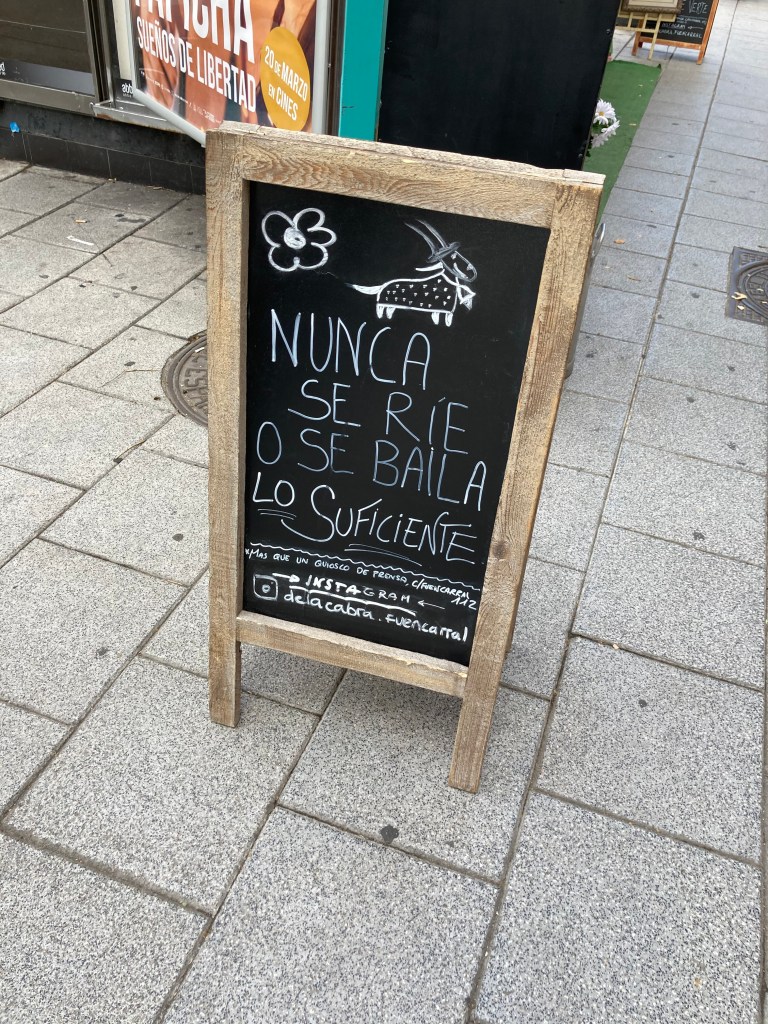 SUEÑOS DE LIBERTAD
20 DE MARZO
EN CINES
NUNCA
SE RÍE
O SE BAILA
LO SUFICIENTE
MAS QUE UN QUIOSCO DE PRENSA, C/FUENCARRAL
112
INSTAGRAM
delacabra.fuencarral